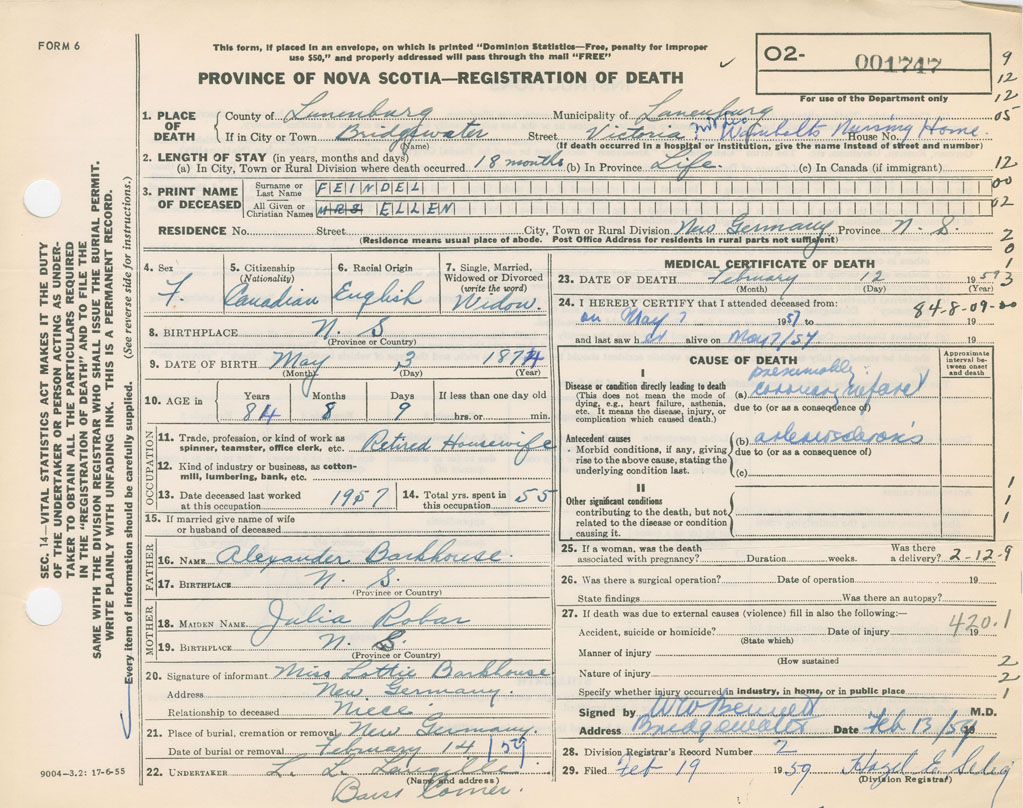 FORM 6
This form, if placed in an envelope, on which is printed "Dominion Statistics—Free, penalty for improper
use $50," and properly addressed will pass through the mail "FREE"
PROVINCE OF NOVA SCOTIA—REGISTRATION OF DEATH
02- 001747
For use of the Department only
9
12
12
05
12
00
02
2
0
1
3
1. PLACE OF DEATH
County of Lunenburg Municipality of Lunenburg
If in City or Town Bridgewater Street Victoria House No. Nursing Home.
(Name) (If death occurred in a hospital or institution, give the name instead of street and number)
2. LENGTH OF STAY (in years, months and days)
(a) In City, Town or Rural Division where death occurred 18 months (b) In Province Life. (c) In Canada (if immigrant)
3. PRINT NAME OF DECEASED
Surname or Last Name FEINDEL
All Given or Christian Names MRS ELLEN
RESIDENCE No. Street City, Town or Rural Division New Germany Province N. S.
(Residence means usual place of abode. Post Office Address for residents in rural parts not sufficient)
4. Sex F.
5. Citizenship (Nationality) Canadian
6. Racial Origin English
7. Single, Married, Widowed or Divorced (write the word) Widow.
8. BIRTHPLACE N. S
(Province or Country)
9. DATE OF BIRTH May 3 1874
(Month) (Day) (Year)
10. AGE in Years 84 Months 8 Days 9 If less than one day old
hrs. or min.
OCCUPATION
11. Trade, profession, or kind of work as spinner, teamster, office clerk, etc. Retired Housewife
12. Kind of industry or business, as cotton-mill, lumbering, bank, etc.
13. Date deceased last worked at this occupation 1957
14. Total yrs. spent in this occupation 55
15. If married give name of wife or husband of deceased
FATHER
16. NAME Alexander Barkhouse.
17. BIRTHPLACE N. S.
(Province or Country)
MOTHER
18. MAIDEN NAME Julia Robar
19. BIRTHPLACE N. S.
(Province or Country)
20. Signature of informant Miss Lottie Barkhouse
Address New Germany.
Relationship to deceased Niece
21. Place of burial, cremation or removal New Germany.
Date of burial or removal February 14/59
22. UNDERTAKER L. L. Langille
(Name and address)
Barss Corner.
MEDICAL CERTIFICATE OF DEATH
23. DATE OF DEATH February 12 1959
(Month) (Day) (Year)
24. I HEREBY CERTIFY that I attended deceased from:
84-8-09-00
on May 7 1957 to 19
and last saw her alive on May 7/57 19
CAUSE OF DEATH
Approximate interval between onset and death
I
Disease or condition directly leading to death
(This does not mean the mode of dying, e.g., heart failure, asthenia, etc. It means the disease, injury, or complication which caused death.)
presumably
(a) coronary infarct
due to (or as a consequence of)
Antecedent causes
Morbid conditions, if any, giving rise to the above cause, stating the underlying condition last.
(b) arteriosclerosis
due to (or as a consequence of)
(c)
II
Other significant conditions
contributing to the death, but not related to the disease or condition causing it.
1
1
1
25. If a woman, was the death associated with pregnancy? Duration weeks. Was there a delivery? 2-12-9
26. Was there a surgical operation? Date of operation 19
State findings Was there an autopsy?
27. If death was due to external causes (violence) fill in also the following:—
Accident, suicide or homicide? Date of injury 19
420.1
(State which)
Manner of injury
(How sustained
Nature of injury
Specify whether injury occurred in industry, in home, or in public place
2
2
1
Signed by W Bennett M.D.
Address Bridgewater Date Feb 13/59
28. Division Registrar's Record Number 2
29. Filed Feb 19 1959 Hazel E Selig
(Division Registrar)
SEC. 14—VITAL STATISTICS ACT MAKES IT THE DUTY
OF THE UNDERTAKER OR PERSON ACTING AS UNDER-
TAKER TO OBTAIN ALL THE PARTICULARS REQUIRED
IN THE "REGISTRATION OF DEATH" AND TO FILE THE
SAME WITH THE DIVISION REGISTRAR WHO SHALL ISSUE THE BURIAL PERMIT.
WRITE PLAINLY WITH UNFADING INK. THIS IS A PERMANENT RECORD.
Every item of information should be carefully supplied. (See reverse side for instructions.)
9004-3.2: 17-6-55